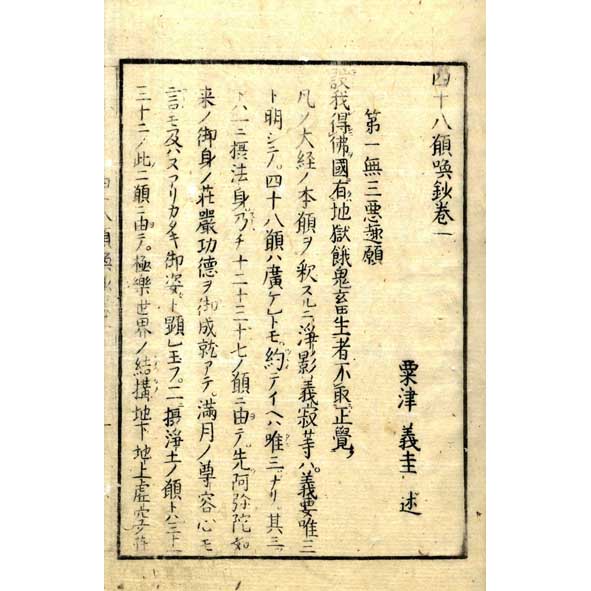 四十八願喚鈔巻一
粟津義圭述
第一無三悪趣願
設我得佛國有地獄餓鬼畜生者不取正覺
凡ソ大経ノ本願ヲ釈スルニ浄影義寂等ハ。義要唯三
ト明シテ。四十八願ハ廣ケレトモ。約テイヘハ唯三ナリ。其三
トハ一ニ摂法身乃チ十二十三十七ノ願ニ由テ。先阿弥陀如
来ノ御身ノ荘嚴功徳ヲ御成就アテ。満月ノ尊容心モ
言モ及ハスアリカタキ御姿ト顕レ玉フ。二摂浄土ノ願トハ三十一
三十二ノ此二願ニ由テ。極樂世界ノ結搆地下地上虚空